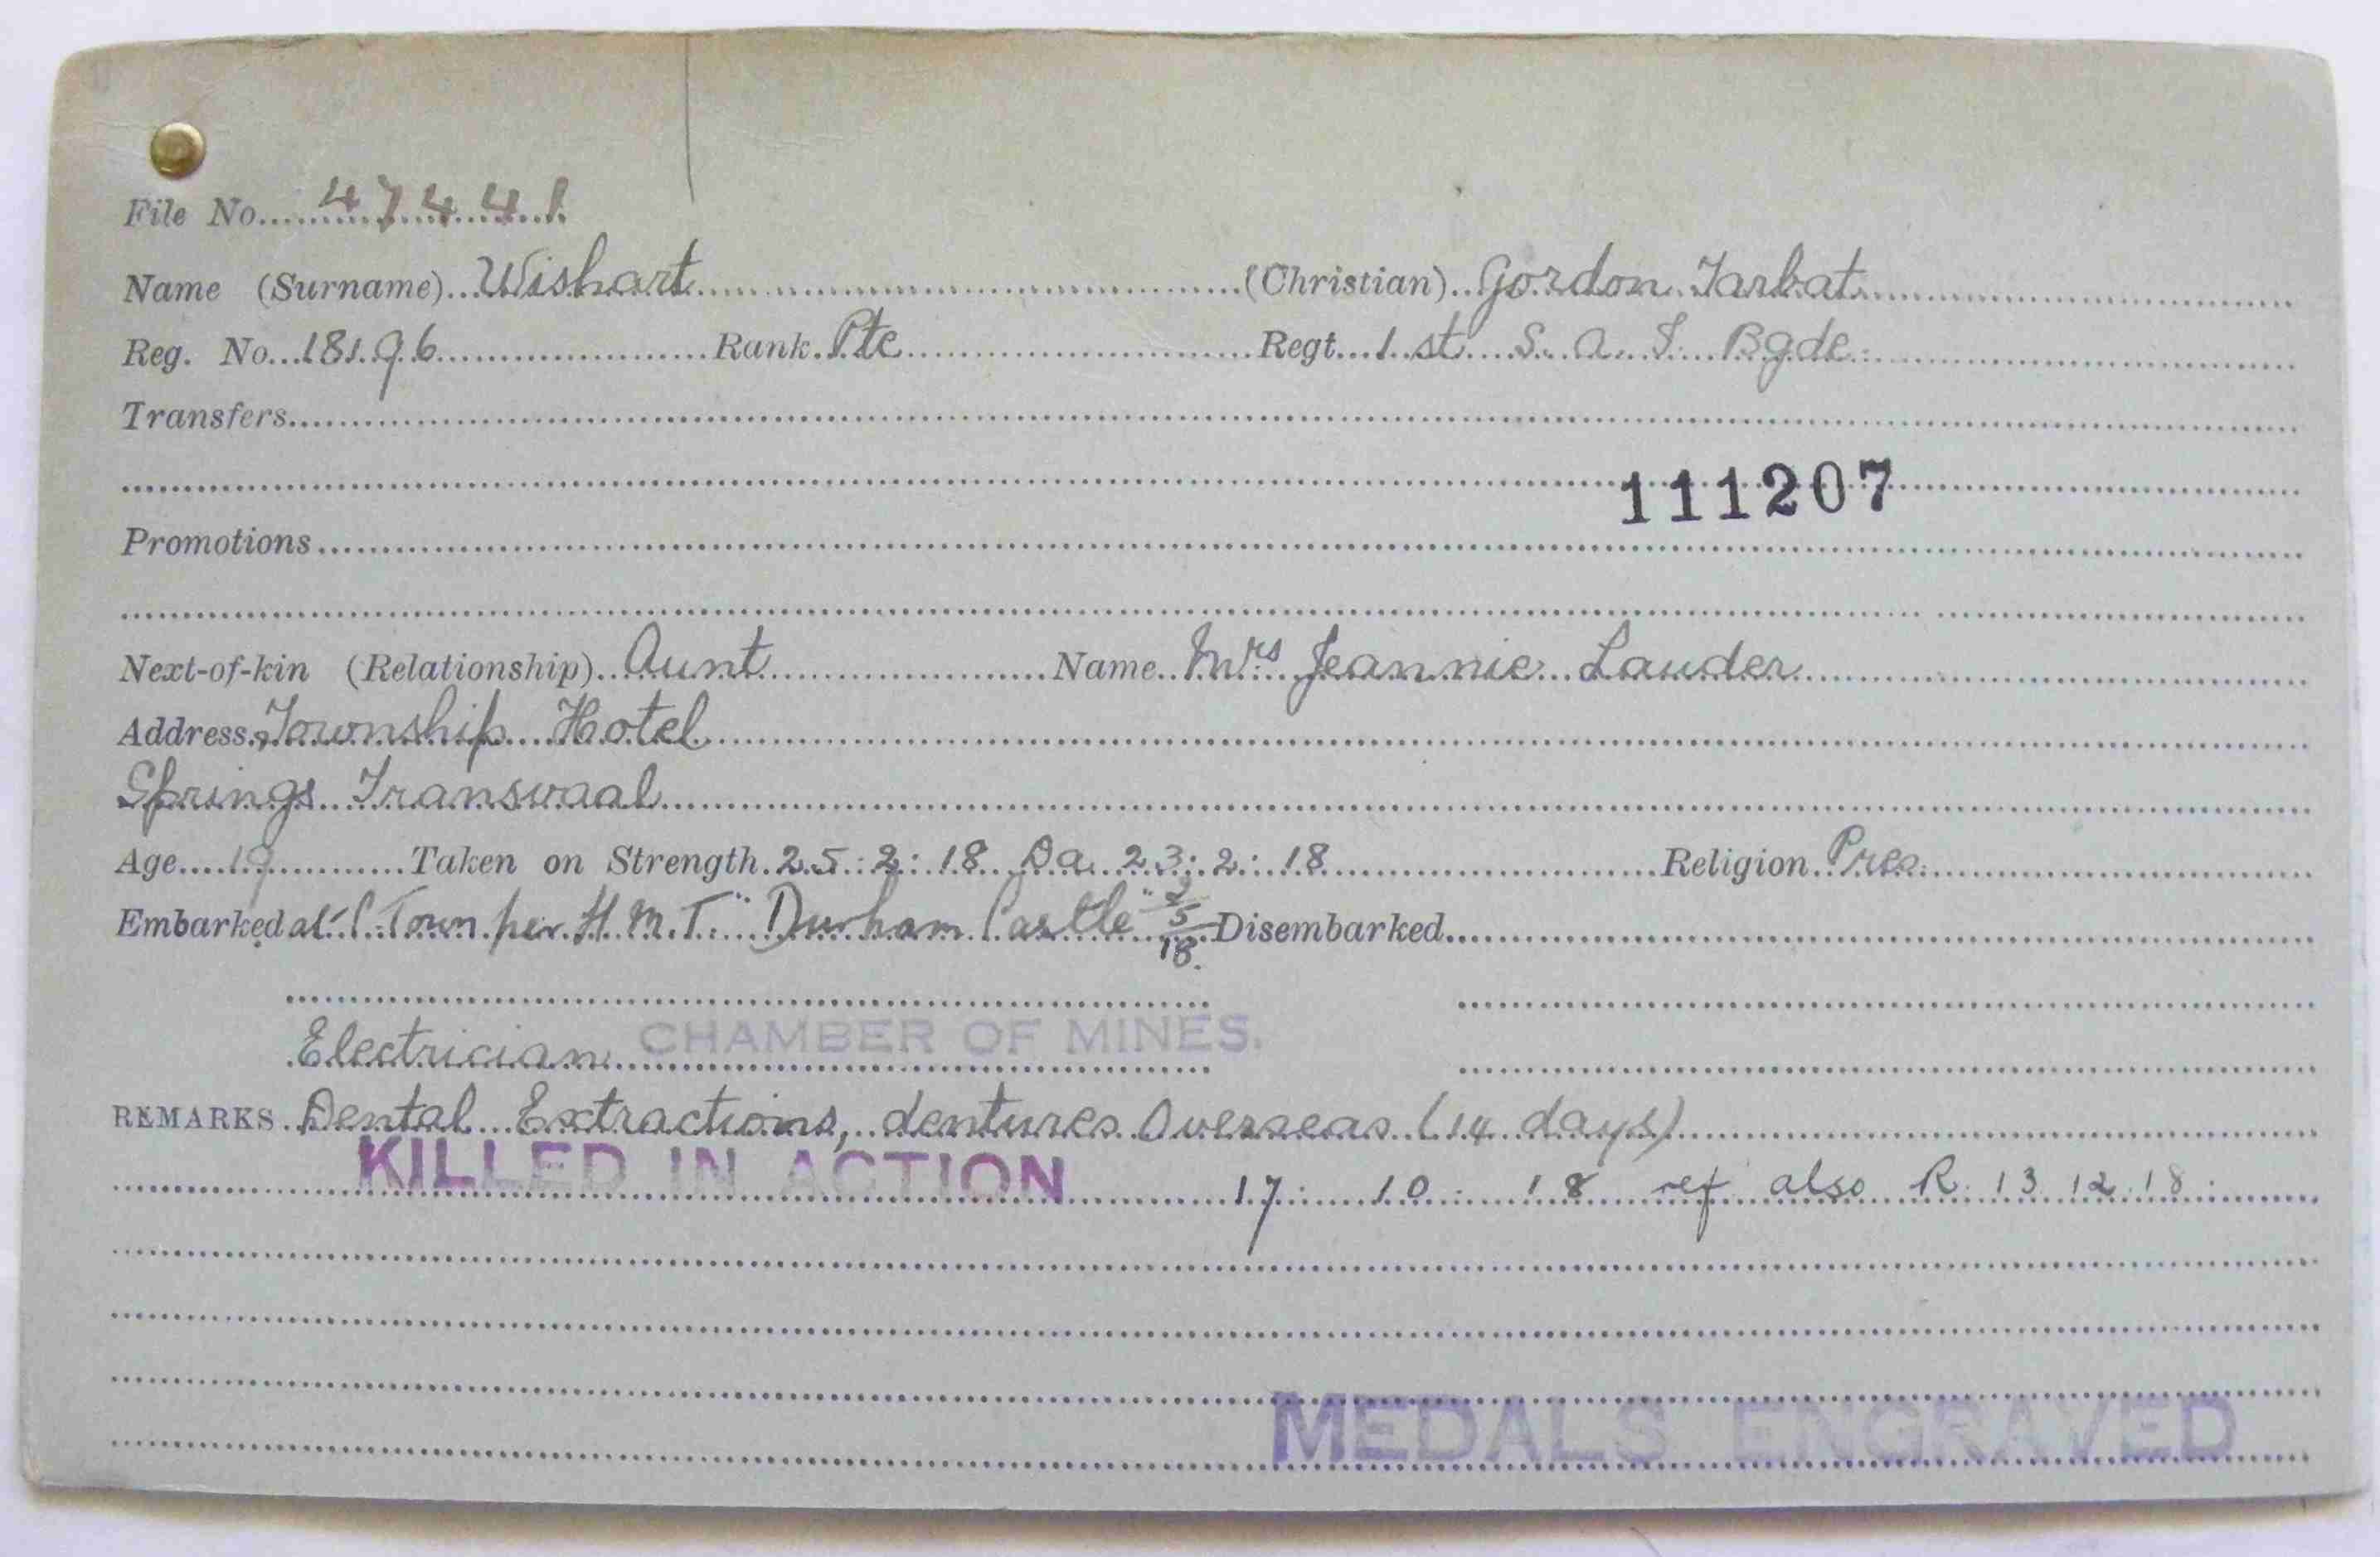 File No. 47441
Name (Surname) Wishart (Christian) Gordon Tarbat
Reg. No. 18196 Rank Pte Regt. 1st S. A. I. Bgde.
Transfers
111207
Promotions
Next-of-kin (Relationship) Aunt Name Mrs Jeannie Lauder
Address Township Hotel
Springs Transvaal
Age 19 Taken on Strength 25:2:18 Da 23:2:18 Religion Pres.
Embarked at C. Town per H.M.T. "Durham Castle" 2/5/18. Disembarked
Electrician CHAMBER OF MINES.
REMARKS Dental Extractions, dentures Overseas (14 days)
KILLED IN ACTION 17: 10: 18 ref also R. 13.12.18:
MEDALS ENGRAVED